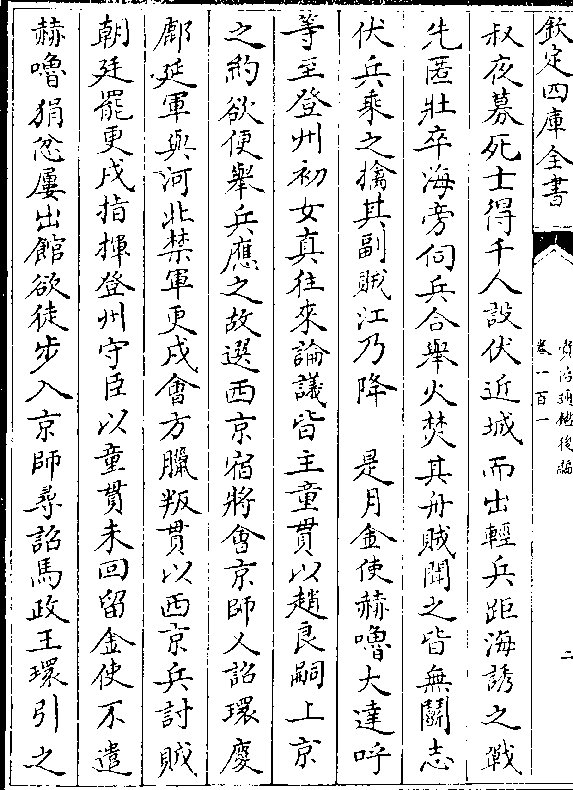 欽定四庫全書
資治通鑑後編
卷一百一
二
叔夜募死士得千人設伏近城而出輕兵距海誘之戰
先匿壯卒海旁伺兵合舉火焚其舟賊聞之皆無鬬志
伏兵乘之擒其副賊江乃降　是月金使赫嚕大達呼
等至登州初女真往來論議皆主童貫以趙良嗣上京
之約欲便舉兵應之故選西京宿將會京師又詔環慶
鄜延軍與河北禁軍更戍會方臘叛貫以西京兵討賊
朝廷罷更戍指揮登州守臣以童貫未回留金使不遣
赫嚕狷忿屢出館欲徒步入京師尋詔馬政王環引之